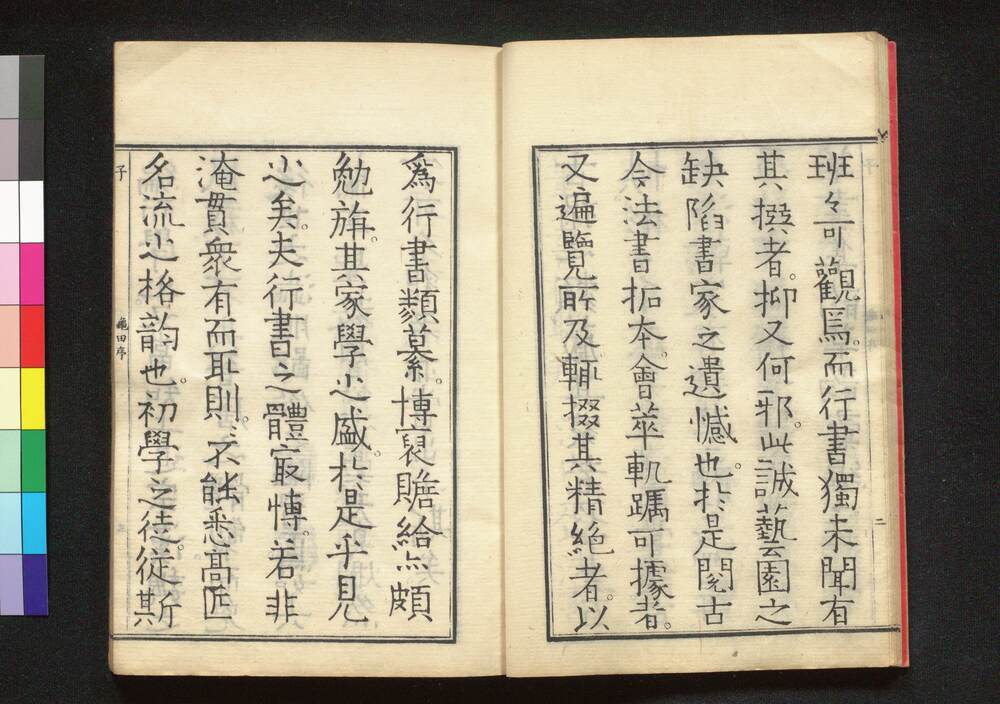 班々可觀焉。而行書獨未聞有
其撰者。抑又何邪。此誠藝園之
缺陷書家之遺憾也。於是閱古
今法書拓本。會萃軌躅可據者。
又遍覽所及。輒掇其精絶者。以
爲行書類纂。博裒贍給。亦頗
勉旃。其家學之盛。於是乎見
之矣。夫行書之體。寂慱。若非
淹貫衆有而取則。不能悉高匠
名流之格韵也。初學之徒。從斯
龜田序
二